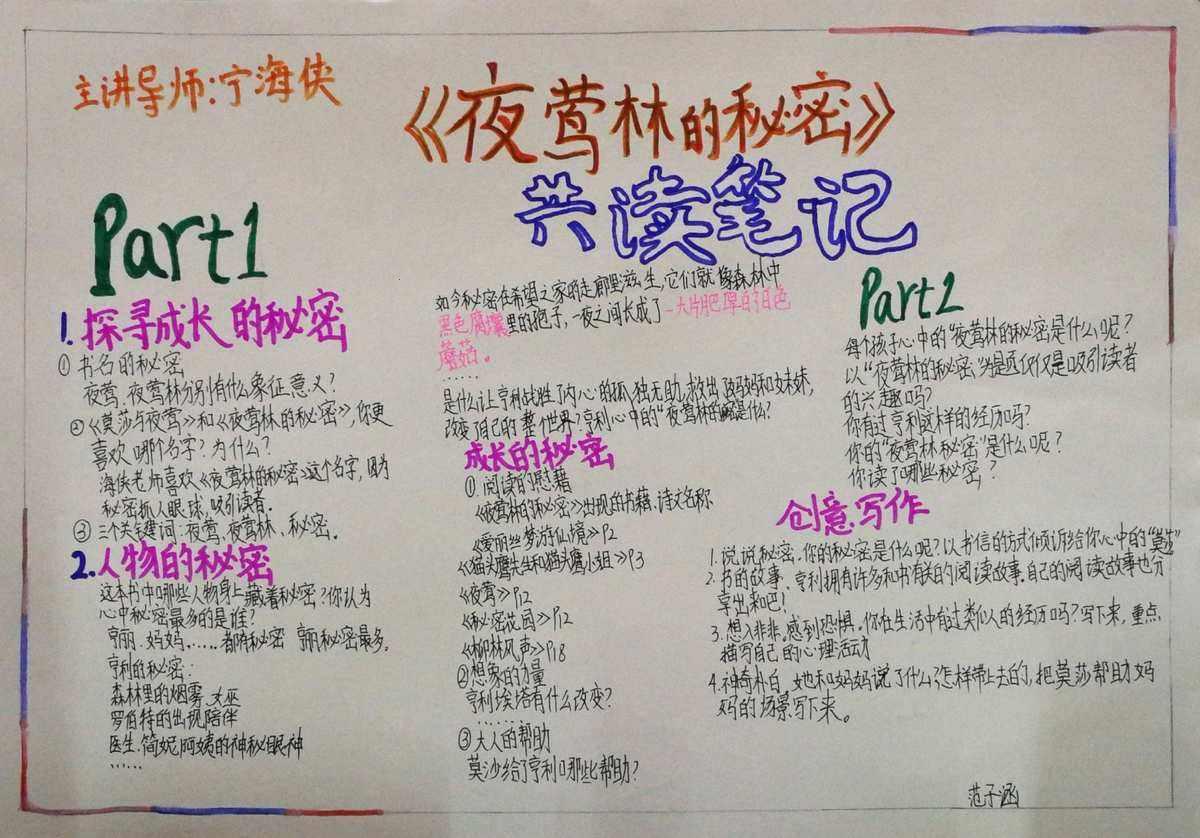 主讲导师:宁海侠
《夜莺林的秘密》
共读笔记
Part1
1.探寻成长的秘密
① 书名的秘密
夜莺、夜莺林分别有什么象征意义?
②《莫莎与夜莺》和《夜莺林的秘密》,你更
喜欢哪个名字?为什么?
海侠老师喜欢《夜莺林的秘密》这个名字,因为
秘密抓人眼球,吸引读者。
③ 三个关键词:夜莺、夜莺林、秘密。
2.人物的秘密
这本书中哪些人物身上藏着秘密?你认为
心中秘密最多的是谁?
亨丽.妈妈......都有秘密 亨丽秘密最多。
亨利的秘密:
森林里的烟雾.女巫
罗伯特的出现陪伴
医生.简妮阿姨的神秘眼神
......
如今秘密在希望之家的走廊里滋生,它们就像森林中
黑色腐壤里的孢子,一夜之间长成了一大片肥厚的白色
蘑菇。
......
是什么让亨利战胜了内心的孤独无助,救出了妈妈和妹妹,
改变了自己的整个世界?亨利心中的"夜莺林的秘密是什么?
成长的秘密
①.阅读的慰藉
《夜莺林的秘密》出现的书籍、诗文名称
《爱丽丝梦游仙境》P2
《猫头鹰先生和猫头鹰小姐》P3
《夜莺》P12
《秘密花园》P12
《柳林风声》P18
②想象的力量
亨利埃塔有什么改变?
......
③大人的帮助
莫沙给了亨利哪些帮助?
Part2
每个孩子心中的"夜莺林的秘密是什么呢?
以"夜莺林的秘密"为是仅仅是吸引读者
的兴趣吗?
你有过亨利这样的经历吗?
你的"夜莺林秘密"是什么呢?
你读了哪些秘密?
创意写作
1.说说秘密.你的秘密是什么呢?以书信的方式倾诉给你心中的"莫莎"
2.书的故事、亨利拥有许多和书有关的阅读故事.自己的阅读故事也分
享出来吧!
3.想入非非。感到恐惧。你在生活中有过类似的经历吗?写下来,重点
描写自己的心理活动
4.神奇朴白,她和妈妈说了什么,怎样带上去的,把莫莎帮助妈
妈的场景写下来。
范子涵